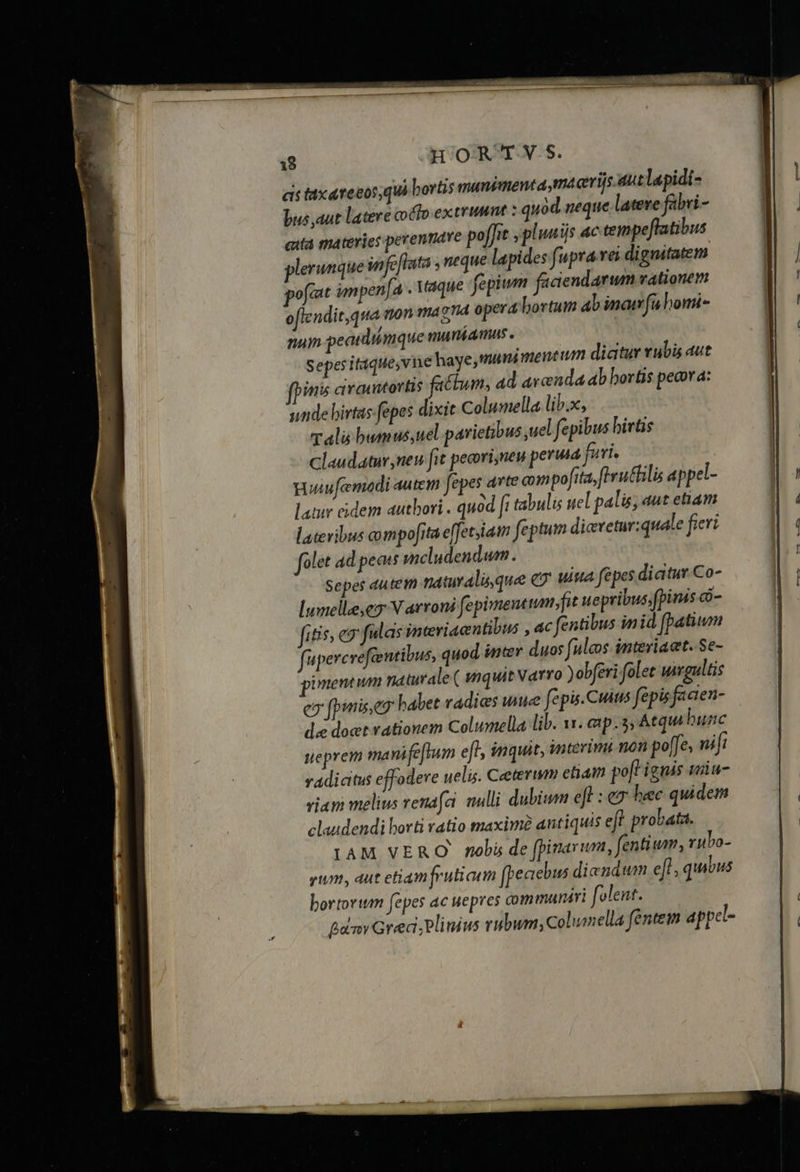 18 HORTVS.
cis taxareeos,qui hortis munimenta,maceriis aut lapidi-
bus,aut latere cocto extruunt : quòd neque latere fabri-
cata materies perennare possit , pluuiis ac tempestatibus
plerunque infestata , neque lapides supra rei dignitatem
poscat impensa . Itaque sepium faciendarum rationem
ostendit,qua non magna opera hortum ab incursu homi-
num pecudúmque muniamus .
Sepes itaque,vne haye,munimentum dicitur rubis aut
spinis circuntortis factum, ad arcenda ab hortis pecora:
unde hirtas sepes dixit Columella lib.x,
Talis humus,uel parietibus,uel sepibus hirtis
Claudatur,neu sit pecori,neu peruia furi.
Huiuscemodi autem sepes arte composita,structilis appel-
latur eidem authori . quòd si tabulis uel palis, aut etiam
lateribus composita esset,iam septum diceretur:quale fieri
solet ad pecus includendum .
Sepes autem naturalis,quæ & uiua sepes dicitur Co-
lumellæ,& Varroni sepimentum,fit uepribus,spinis cō-
sitis, & fulcis interiacentibus , ac sentibus in id spatium
supercrescentibus, quod inter duos sulcos interiacet. Se-
pimentum naturale ( inquit Varro ) obseri solet uirgultis
& spinis,& habet radices uiuæ sepis.Cuius sepis facien-
dæ docet rationem Columella lib. 11. cap.3, Atqui hunc
ueprem manifestum est, inquit, interimi non posse, nisi
radicitus effodere uelis. Cæterum etiam post ignis iniu-
riam melius renasci nulli dubium est : & hæc quidem
claudendi horti ratio maximè antiquis est probata.
IAM VERO nobis de spinarum, sentium, rubo-
rum, aut etiam fruticum speciebus dicendum est, quibus
hortorum sepes ac uepres communiri solent.
βάτον Græci,Plinius rubum,Columella sentem appel-